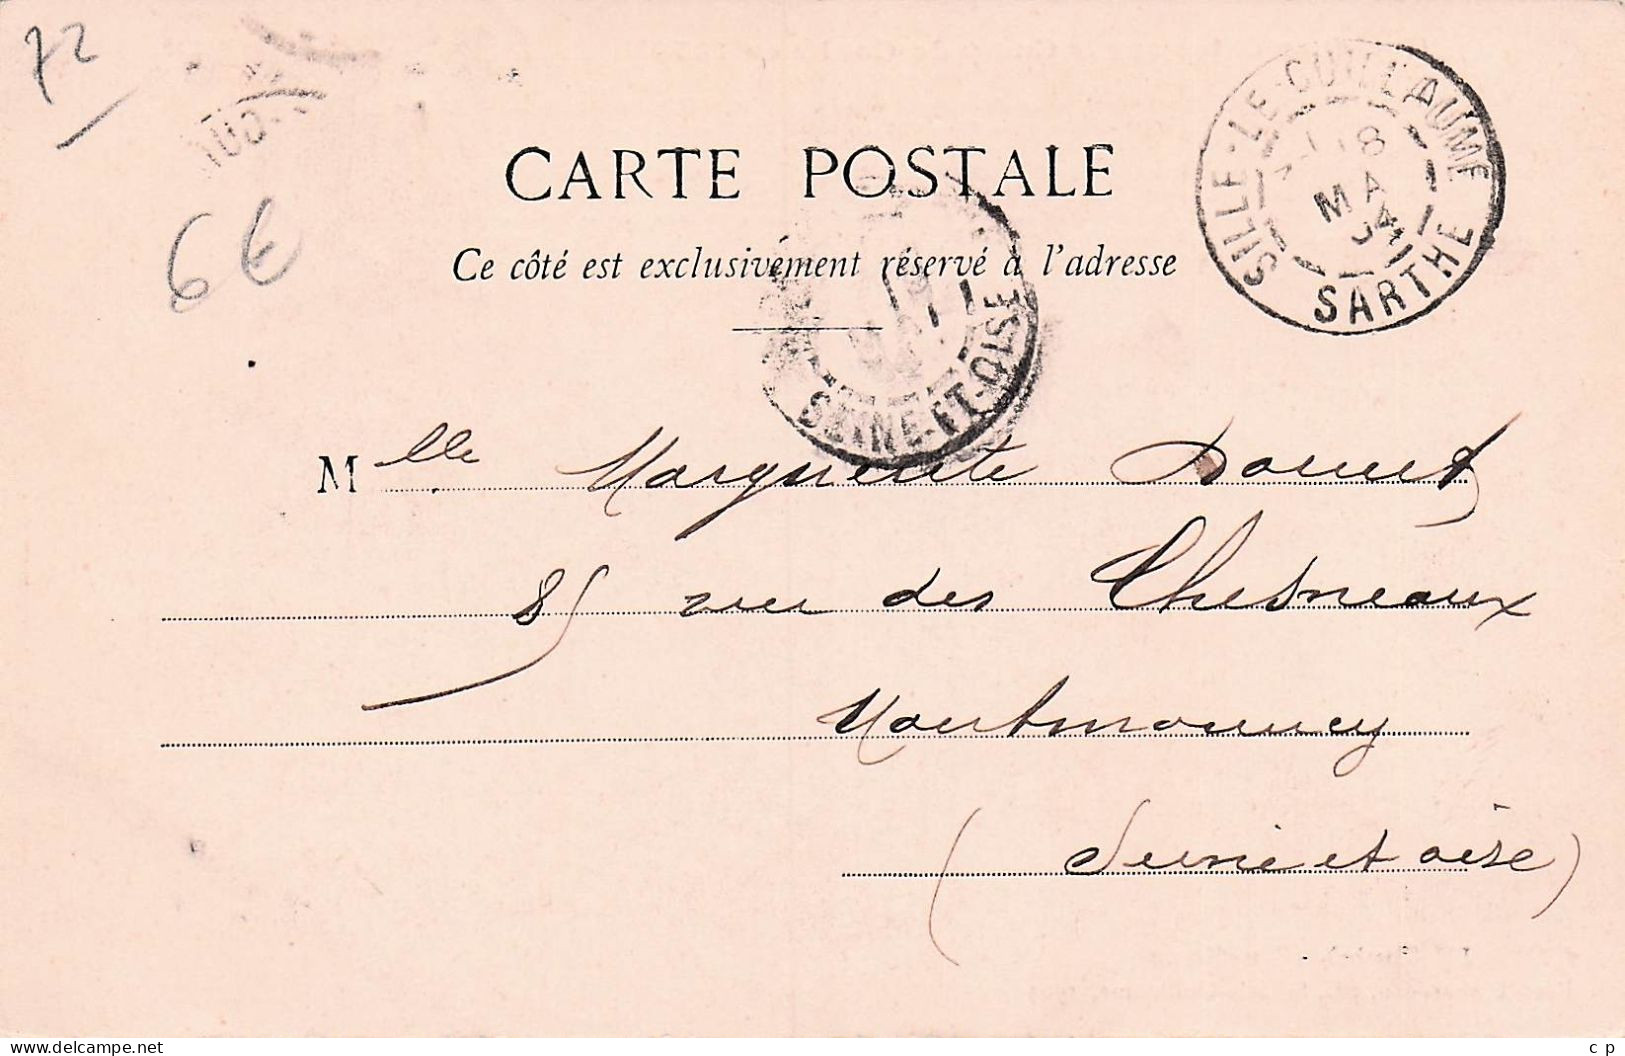 72
6€
CARTE POSTALE
Ce côté est exclusivement réservé à l'adresse
SILLE-LE-GUILLAUME
18
MA
04
SARTHE
SEINE-ET-OISE
Mlle Marguerite
85 rue des Chesneaux
Montmorency
(Seine et oise)
delcampe.net
c p